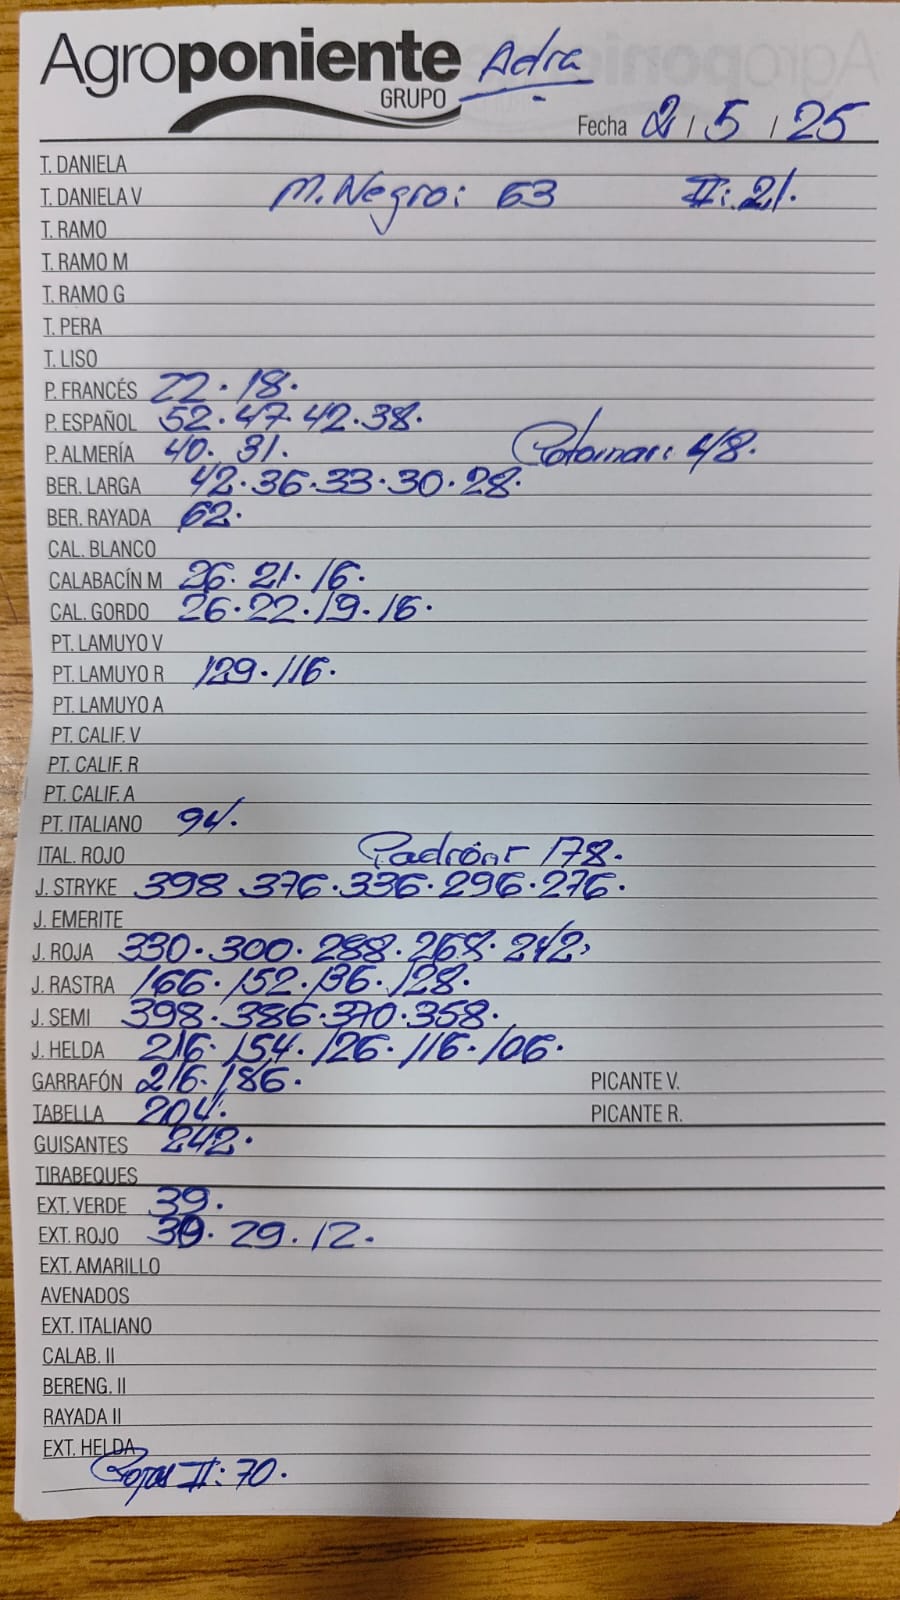 Agroponiente Adra
GRUPO
Fecha 2/5/25
T. DANIELA
T. DANIELA V M. Negro: 63 II: 21.
T. RAMO
T. RAMO M
T. RAMO G
T. PERA
T. LISO
P. FRANCÉS 22. 18.
P. ESPAÑOL 52. 47. 42. 38.
P. ALMERÍA 40. 31. 48.
BER. LARGA 42. 36. 33. 30. 28.
BER. RAYADA 62.
CAL. BLANCO
CALABACÍN M 26. 21. 16.
CAL. GORDO 26. 22. 19. 16.
PT. LAMUYO V
PT. LAMUYO R 129. 116.
PT. LAMUYO A
PT. CALIF. V
PT. CALIF. R
PT. CALIF. A
PT. ITALIANO 94.
ITAL. ROJO Padrón: 178.
J. STRYKE 398 376. 336. 296. 276.
J. EMERITE
J. ROJA 330. 300. 288. 268. 242.
J. RASTRA 166. 152. 136. 128.
J. SEMI 398. 386. 370. 358.
J. HELDA 216. 154. 126. 116. 106.
GARRAFÓN 216. 186. PICANTE V.
TABELLA 204. PICANTE R.
GUISANTES 242.
TIRABEQUES
EXT. VERDE 39.
EXT. ROJO 29. 12.
EXT. AMARILLO
AVENADOS
EXT. ITALIANO
CALAB. II
BERENG. II
RAYADA II
EXT. HELDA
Rojas II: 70.